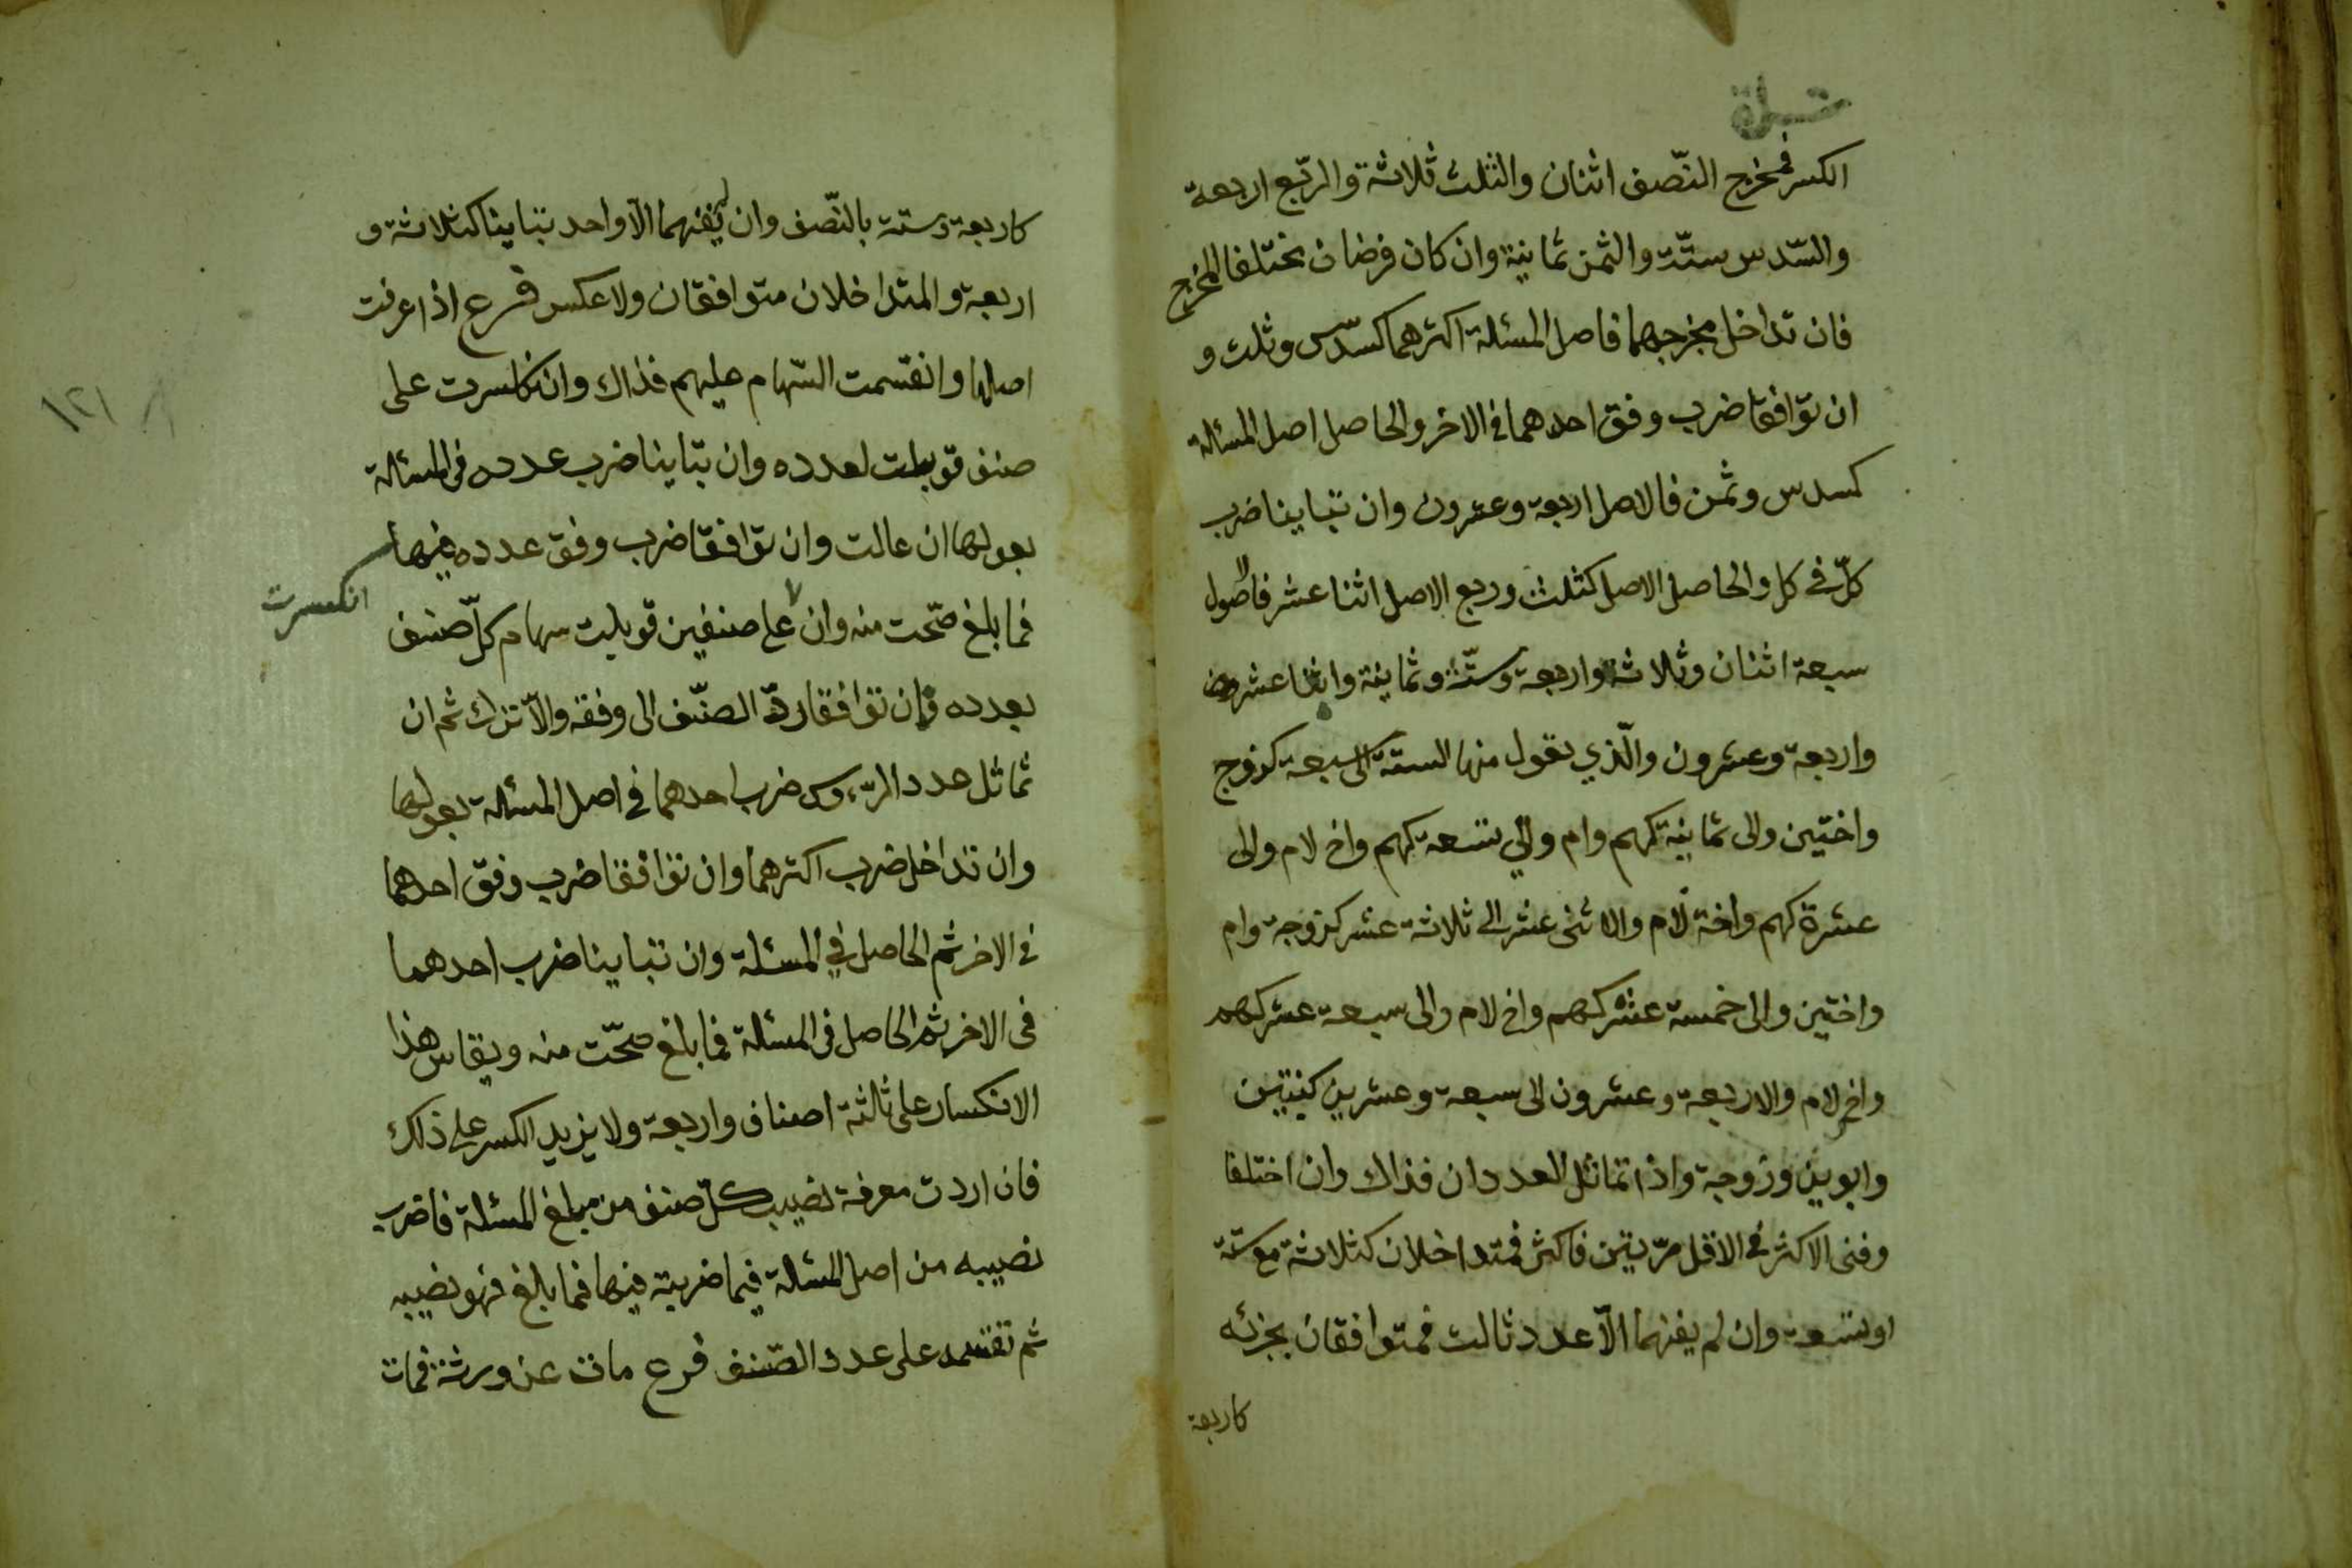 الكسر فمخرج النّصف اثنان والثلث ثلاثة والرّبع اربعة
والسّدس ستّة والثمن ثمانية وان كان فرضان مختلفا المخرج
فان تداخل مخرجهما فاصل المسئلة اكثرهما كسدّس وثلث و
ان توافقا ضرب وفق احدهما في الاخر والحاصل اصل المسئلة
كسدس وثمن فالاصل اربعة وعشرون وان تباينا ضرب
كلّ في كل والحاصل الاصل كثلث وربع الاصل اثنا عشر فالاصول
سبعة اثنان وثلاثة واربعة وستّة وثمانية واثنا عشر
واربعة وعشرون والّذي يعول منها الستة الى سبعة كزوج
واختين والى ثمانية كهم وام والي تسعة كهم واخ لام والى
عشرة كهم واخة لام والاثنى عشر الى ثلاثة عشر كزوجة وام
واختين والى خمسة عشر كهم واخ لام والى سبعة عشر كهم
واخ لام والاربعة وعشرون الى سبعة وعشرين كبنتين
وابوين وزوجة واذا تماثل العددان فذاك وان اختلفا
وفنى الاكثر في الاقل مرّيتين فاكثر فمتداخلان كثلاثة مع ستة
او تسعة وان لم يفنهما الاّ عدد ثالث فمتوافقان بجزئه
كاربعة
كاربعة وستة بالنّصف وان لم يفنهما الاّ واحد تباينا كثلاثة و
اربعة والمتداخلان متوافقان ولا عكس فرع اذا عرفت
اصلها وانقسمت السّهام عليهم فذاك وان انكسرت على
صنف قوبلت لعدده وان تباينا ضرب عدده في المسئلة
بعولها ان عالت وان توافقا ضرب وفق عدده فيها
فما بلغ صحّت منه وان على صنفين قوبلت سهام كلّ صنف
انكسرت
بعدده فان توافقا ردّ الصنّف الى وفقه والاّ ترك ثم ان
تماثل عدد الرّءوس ضرب احدهما في اصل المسئلة بعولها
وان تداخل ضرب اكثرهما وان توافقا ضرب وفق احدهما
في الاخر ثم الحاصل في المسئلة وان تباينا ضرب احدهما
في الاخر ثم الحاصل في المسئلة فما بلغ صحّت منه ويقاس هذا
الانكسار على ثالثة اصناف واربعة ولا يزيد الكسر على ذلك
فان اردت معرفة نصيب كلّ صنف من مبلغ المسئلة فاضرب
نصيبه من اصل المسئلة فيما ضربته فيها فما بلغ فهو نصيبه
ثم تقسمه على عدد الصّنف فرع مات عن ورثة فمات
١٢١